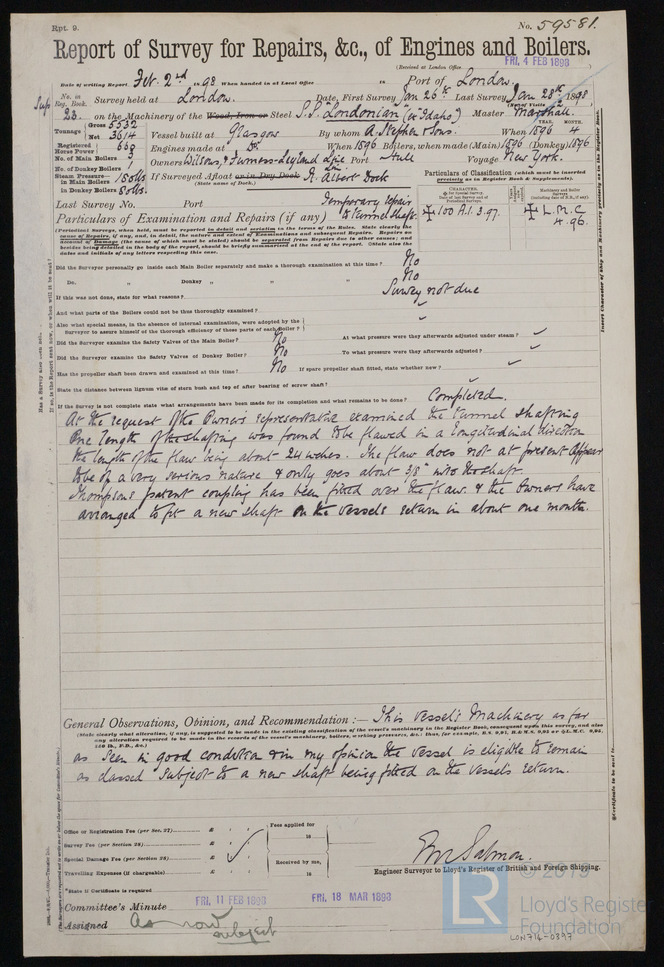 Rpt. 9.
No. 59581.
Report of Survey for Repairs, &c., of Engines and Boilers.
(Received at London Office FRI. 4 FEB 1898 )
Date of writing Report Feb. 2nd 1898 When handed in at Local Office 18 Port of London.
No. in Reg. Book. Survey held at London. Date, First Survey Jan 26th Last Survey Jan 28th 1898
(No. of Visits 2 )
Sup 23. on the Machinery of the Wood, Iron or Steel S.S. "Londonian" (ex Idaho) Master Marshall.
Tonnage Gross 5532 Net 3614 Vessel built at Glasgow By whom A. Stephen & Sons. When 1896 4
YEAR. MONTH.
Registered Horse Power 669 Engines made at Do. When 1896 Boilers, when made (Main) 1896 (Donkey) 1896
No. of Main Boilers 3 Owners Wilsons, & Furness-Leyland Line Port Hull Voyage New York.
No. of Donkey Boilers 1
Steam Pressure— in Main Boilers 180 lbs If Surveyed Afloat or in Dry Dock R. Albert Dock
in Donkey Boilers 80 lbs. (State name of Dock.)
Particulars of Classification (which must be inserted precisely as in Register Book & Supplements).
Last Survey No. Port Temporary repair
Particulars of Examination and Repairs (if any) to tunnel shaft.
✠ 100 A.1. 3.97.
✠ L.M.C. 4.96.
(Periodical Surveys, when held, must be reported in detail and seriatim in the terms of the Rules. State clearly the cause of Repairs, if any, and, in detail, the nature and extent of Examinations and subsequent Repairs. Repairs on account of Damage (the cause of which must be stated) should be separated from Repairs due to other causes; and besides being detailed in the body of the report, should be briefly summarized at the end of the report. State also the dates and initials of any letters respecting this case.
Did the Surveyor personally go inside each Main Boiler separately and make a thorough examination at this time? No
Do. " Donkey " " " No
If this was not done, state for what reasons? Survey not due
And what parts of the Boilers could not be thus thoroughly examined?
Also what special means, in the absence of internal examination, were adopted by the Surveyor to assure himself of the thorough efficiency of those parts of each Boiler?
Did the Surveyor examine the Safety Valves of the Main Boiler? No At what pressure were they afterwards adjusted under steam?
Did the Surveyor examine the Safety Valves of Donkey Boiler? No To what pressure were they afterwards adjusted?
Has the propeller shaft been drawn and examined at this time? No If spare propeller shaft fitted, state whether new?
State the distance between lignum vitæ of stern bush and top of after bearing of screw shaft?
If the Survey is not complete state what arrangements have been made for its completion and what remains to be done? Completed.
At the request of the Owners representative examined the tunnel shafting
One length of the shafting was found to be flawed in a longitudinal direction
the length of the flaw being about 24 inches. The flaw does not at present appear
to be of a very serious nature & only goes about 1/8" into the shaft.
Thompsons patent coupling has been fitted over the flaw & the Owners have
arranged to fit a new shaft on the vessels return in about one month.
General Observations, Opinion, and Recommendation:— This vessel's Machinery as far
(State clearly what alteration, if any, is suggested to be made in the existing classification of the vessel's machinery in the Register Book, consequent upon this survey, and also any alteration required to be made in the records of the vessel's machinery, boilers, working pressures, &c.: thus, for example,
as seen in good condition & in my opinion the vessel is eligible to remain
as classed subject to a new shaft being fitted on the vessel's return.
Office or Registration Fee (per Sec. 27) £ : : Fees applied for
Survey Fee (per Section 28) £ : : 18
Special Damage Fee (per Section 28) £ : : Received by me,
Travelling Expenses (if chargeable) £ : : 18
Engineer Surveyor to Lloyd's Register of British and Foreign Shipping.
*State if Certificate is required
Committee's Minute FRI. 11 FEB 1898 FRI. 18 MAR 1898
Assigned As now
subject
© 2019
LR
Lloyd's Register
Foundation
LON714-0397